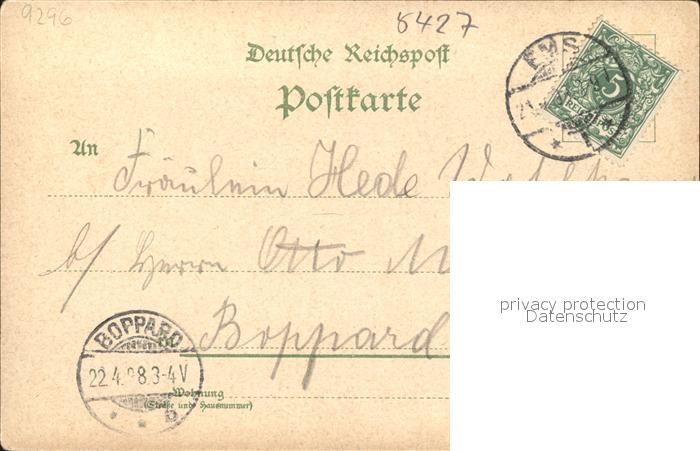 9296
8427
Deutsche Reichspost
Postkarte
EMS
An
Fräulein Hede
b/ Herrn Otto M
Boppard
BOPPARD
22.4.98.3-4V
Wohnung
(Straße und Hausnummer)
privacy protection
Datenschutz